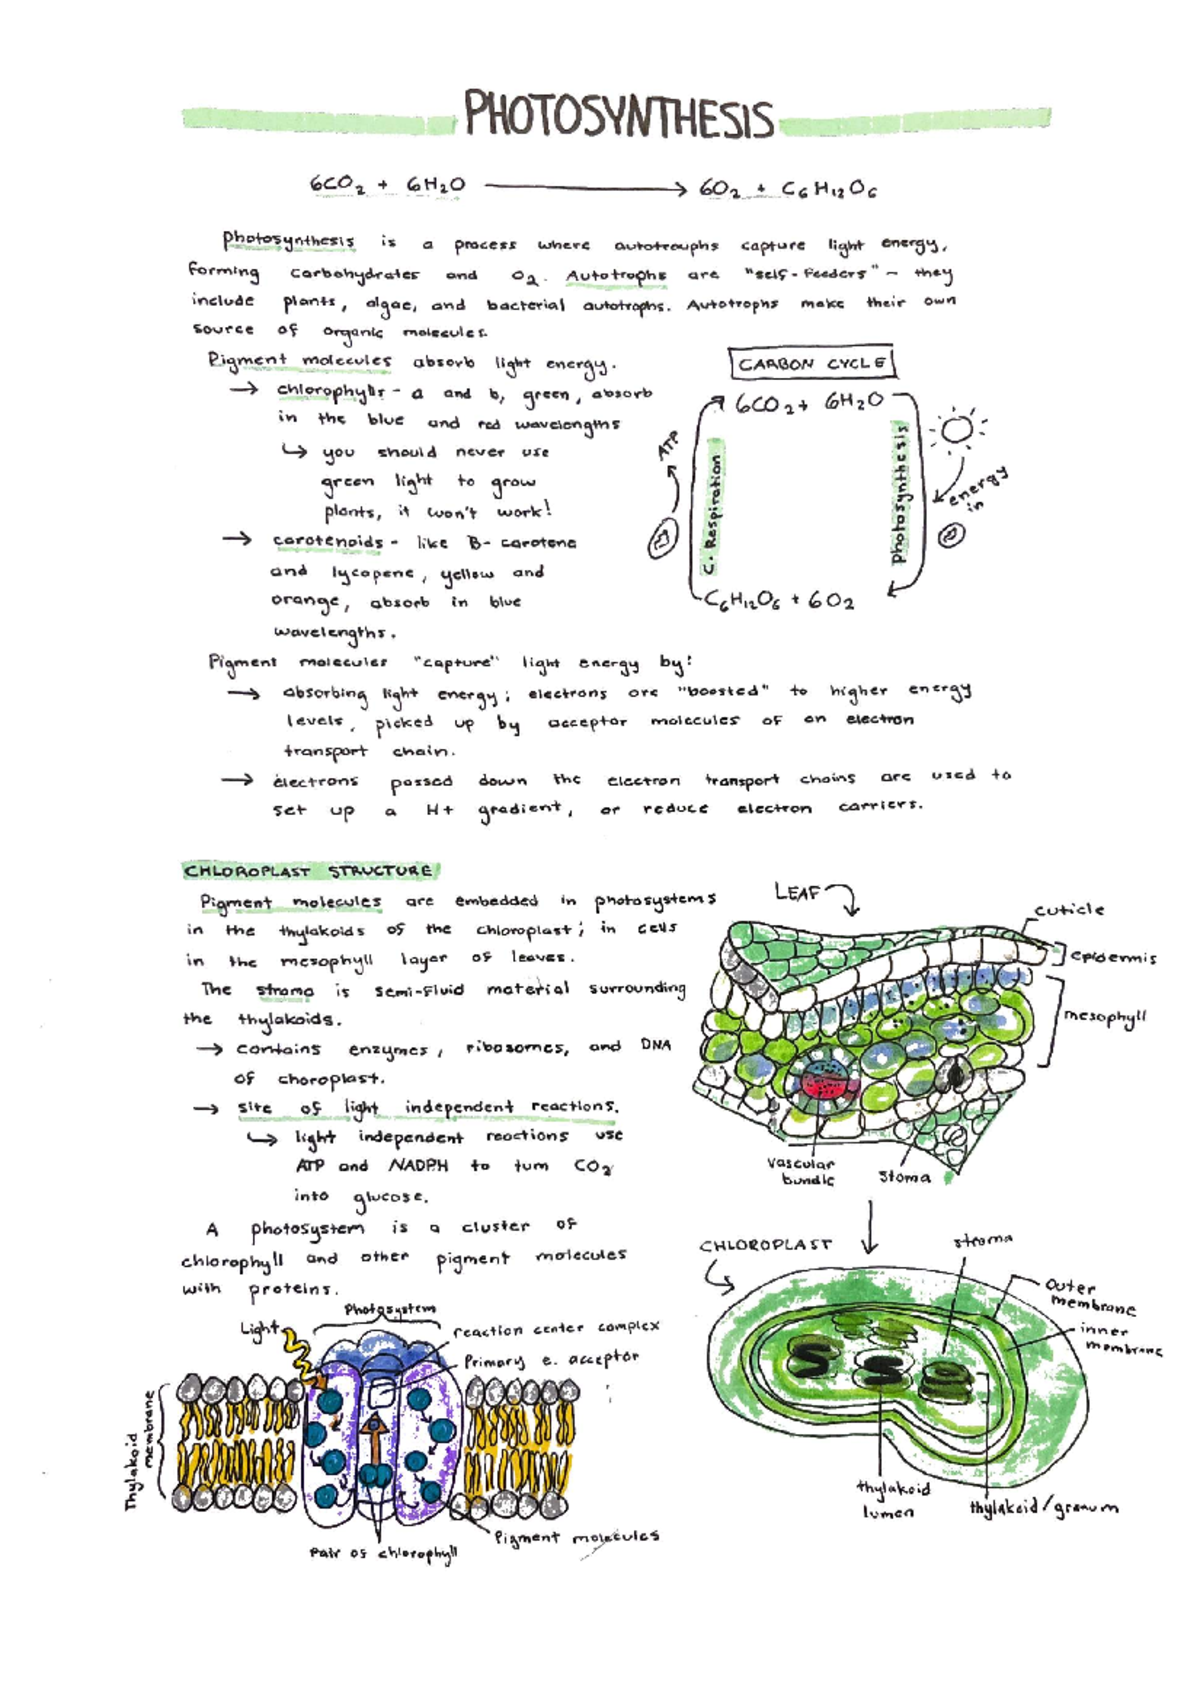 PHOTOSYNTHESIS
6CO₂ + 6H₂O ⟶ 6O₂ + C₆H₁₂O₆
Photosynthesis is a process where autotrouphs capture light energy,
forming carbohydrates and O₂. Autotrophs are "self-feeders" - they
include plants, algae, and bacterial autotrophs. Autotrophs make their own
source of organic molecules.
Pigment molecules absorb light energy.
→ chlorophylls - a and b, green, absorb
in the blue and red wavelengths
↳ you should never use
green light to grow
plants, it won't work!
→ carotenoids - like B-carotene
and lycopene, yellow and
orange, absorb in blue
wavelengths.
CARBON CYCLE
6CO₂ + 6H₂O
ATP
C. Respiration
Photosynthesis
energy
in
C₆H₁₂O₆ + 6O₂
Pigment molecules "capture" light energy by:
→ absorbing light energy; electrons are "boosted" to higher energy
levels, picked up by acceptor molecules of an electron
transport chain.
→ electrons passed down the electron transport chains are used to
set up a H+ gradient, or reduce electron carriers.
CHLOROPLAST STRUCTURE
Pigment molecules are embedded in photosystems
in the thylakoids of the chloroplast; in cells
in the mesophyll layer of leaves.
The stroma is semi-fluid material surrounding
the thylakoids.
→ contains enzymes, ribosomes, and DNA
of choroplast.
→ site of light independent reactions.
↳ light independent reactions use
ATP and NADPH to turn CO₂
into glucose.
A photosystem is a cluster of
chlorophyll and other pigment molecules
with proteins.
LEAF
cuticle
epidermis
mesophyll
Vascular
bundle
Stoma
CHLOROPLAST
stroma
outer
membrane
inner
membrane
thylakoid
lumen
thylakoid/granum
Photosystem
Light
reaction center complex
Primary e. acceptor
Thylakoid
membrane
Pigment molecules
Pair of chlorophyll